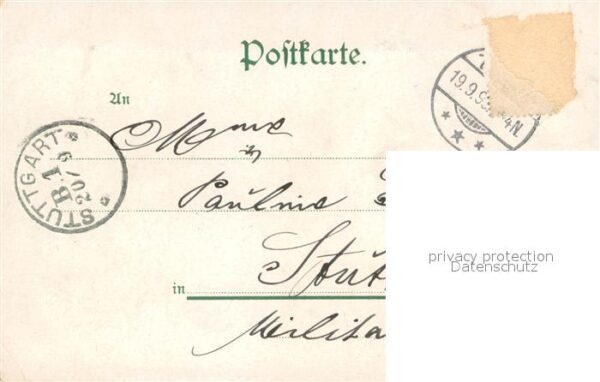 Postkarte.
An
Mme
Pauline
Stut
in
Milita
STUTTGART
B.1
20/9
19.9.9
4N
privacy protection
Datenschutz